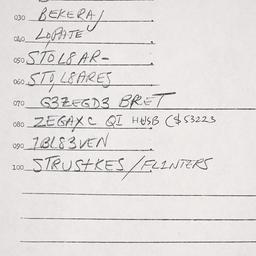 030 BEKERAJ
040 LOPATE
050 STOL8AR-
060 STOL8ARES
070 G3ZEGD3 BRET
080 ZEGAXC QI HUSB ($53223
090 1BL83VEN
100 STRUSTKES/FLINTERS